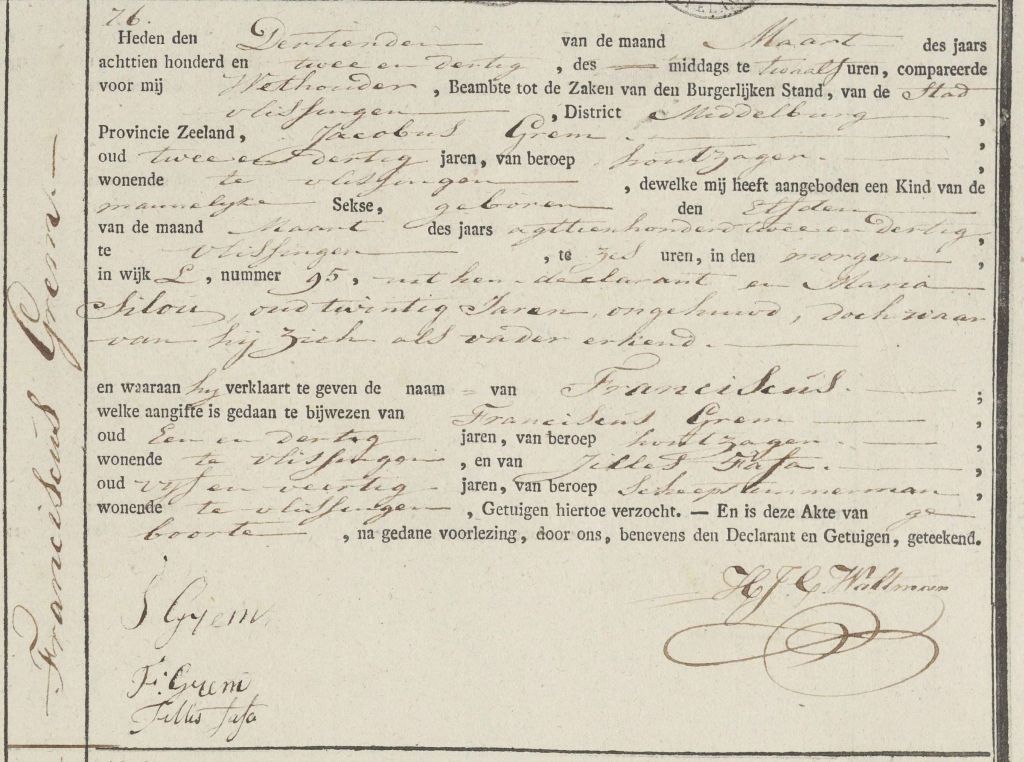 76.
Heden den Dertienden van de maand Maart des jaars
achttien honderd en twee en dertig, des — middags te twaalf uren, compareerde
voor mij Wethouder, Beambte tot de Zaken van den Burgerlijken Stand, van de Stad
vlissingen, District Middelburg,
Provincie Zeeland, Jacobus Grem.
oud twee en dertig jaren, van beroep houtzager.
wonende te vlissingen, dewelke mij heeft aangeboden een Kind van de
mannelyke Sekse, geboren den Elfden
van de maand Maart des jaars agttienhonderd twee en dertig,
te vlissingen, te zes uren, in den morgen,
in wijk L, nummer 95, uit hem declarant en Maria
Silou, oud twintig Jaren, ongehuwd, doch waar
van hij zich als vader erkend.
en waaraan hy verklaart te geven de naam = van Franciscus.;
welke aangifte is gedaan te bijwezen van Franciscus Grem,
oud Een en dertig jaren, van beroep houtzager.,
wonende te vlissingen, en van Jilles Fasa.,
oud vyf en veertig jaren, van beroep Scheepstimmerman,
wonende te vlissingen, Getuigen hiertoe verzocht. — En is deze Akte van ge
boorte, na gedane voorlezing, door ons, benevens den Declarant en Getuigen, geteekend.
H J C Waltman
J Grem
F: Grem
Jillis fasa
Franciscus Grem.